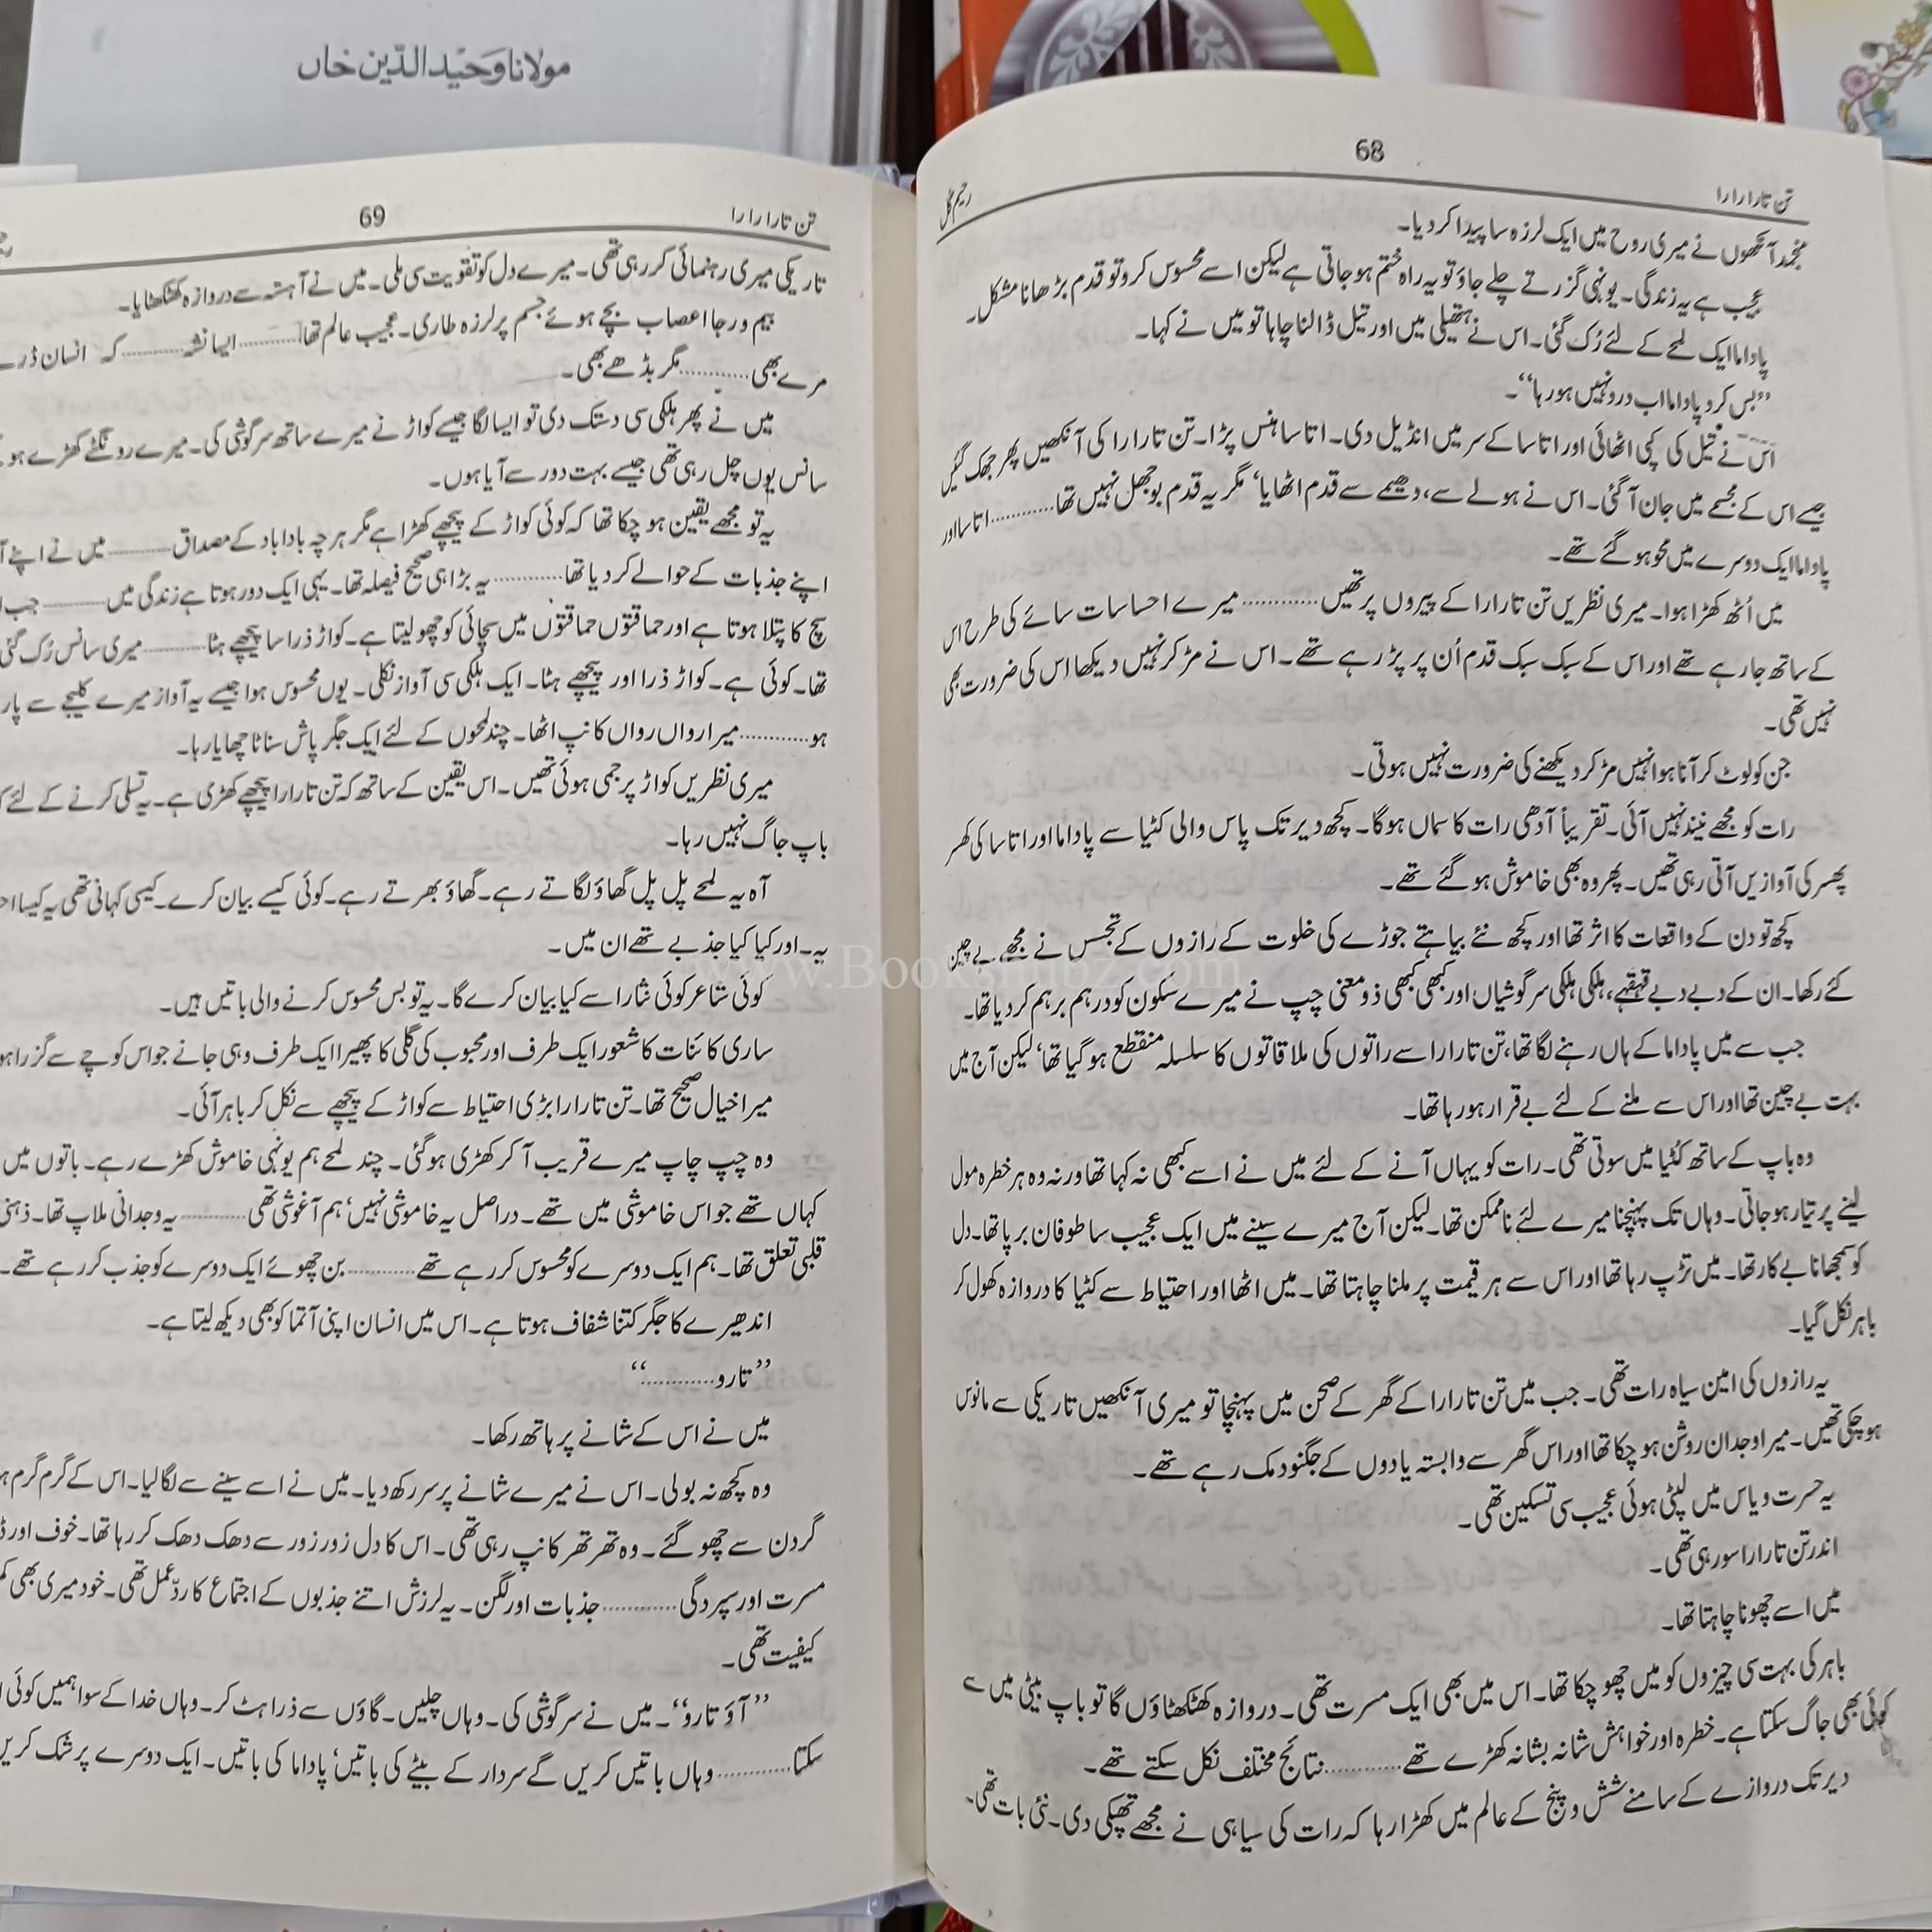 مولانا وحید الدّین خاں
68
تن تارا را را
رحیم گل
منجمد آنکھوں نے میری روح میں ایک لرزہ سا پیدا کر دیا۔
عجیب ہے یہ زندگی۔ یونہی گزرتے چلے جاؤ تو یہ راہ ختم ہو جاتی ہے لیکن اسے محسوس کرو تو قدم بڑھانا مشکل۔
پاداما ایک لمحے کے لئے رُک گئی۔ اس نے ہتھیلی میں اور تیل ڈالنا چاہا تو میں نے کہا۔
”بس کرو پاداما اب درد نہیں ہو رہا“۔
اس نے تیل کی کپی اٹھائی اور اتاسا کے سر میں انڈیل دی۔ اتاسا ہنس پڑا۔ تن تارا را کی آنکھیں پھر جھک گئیں
جیسے اس کے مجسمے میں جان آ گئی۔ اس نے ہولے سے، دھیمے سے قدم اٹھایا‘ مگر یہ قدم بوجھل نہیں تھا............اتاسا اور
پاداما ایک دوسرے میں محو ہو گئے تھے۔
میں اُٹھ کھڑا ہوا۔ میری نظریں تن تارا را کے پیروں پر تھیں............میرے احساسات سائے کی طرح اس
کے ساتھ جا رہے تھے اور اس کے سبک سبک قدم اُن پر پڑ رہے تھے۔ اس نے مڑ کر نہیں دیکھا اس کی ضرورت بھی
نہیں تھی۔
جن کو لوٹ کر آنا ہو انہیں مڑ کر دیکھنے کی ضرورت نہیں ہوتی۔
رات کو مجھے نیند نہیں آئی۔ تقریباً آدھی رات کا سماں ہوگا۔ کچھ دیر تک پاس والی کٹیا سے پاداما اور اتاسا کی کھسر
پھسر کی آوازیں آتی رہی تھیں۔ پھر وہ بھی خاموش ہو گئے تھے۔
کچھ تو دن کے واقعات کا اثر تھا اور کچھ نئے بیاہتے جوڑے کی خلوت کے رازوں کے تجسس نے مجھے بے چین
کئے رکھا۔ ان کے دبے دبے قہقہے، ہلکی ہلکی سرگوشیاں اور کبھی کبھی ذو معنی چپ نے میرے سکون کو درہم برہم کر دیا تھا۔
جب سے میں پاداما کے ہاں رہنے لگا تھا، تن تارا را سے راتوں کی ملاقاتوں کا سلسلہ منقطع ہو گیا تھا‘ لیکن آج میں
بہت بے چین تھا اور اس سے ملنے کے لئے بے قرار ہو رہا تھا۔
وہ باپ کے ساتھ کٹیا میں سوتی تھی۔ رات کو یہاں آنے کے لئے میں نے اسے کبھی نہ کہا تھا ورنہ وہ ہر خطرہ مول
لینے پر تیار ہو جاتی۔ وہاں تک پہنچنا میرے لئے ناممکن تھا۔ لیکن آج میرے سینے میں ایک عجیب سا طوفان برپا تھا۔ دل
کو سمجھانا بے کار تھا۔ میں تڑپ رہا تھا اور اس سے ہر قیمت پر ملنا چاہتا تھا۔ میں اٹھا اور احتیاط سے کٹیا کا دروازہ کھول کر
باہر نکل گیا۔
یہ رازوں کی امین سیاہ رات تھی۔ جب میں تن تارا را کے گھر کے صحن میں پہنچا تو میری آنکھیں تاریکی سے مانوس
ہو چکی تھیں۔ میرا وجدان روشن ہو چکا تھا اور اس گھر سے وابستہ یادوں کے جگنو دمک رہے تھے۔
یہ حسرت و یاس میں لپٹی ہوئی عجیب سی تسکین تھی۔
اندر تن تارا را سو رہی تھی۔
میں اسے چھونا چاہتا تھا۔
باہر کی بہت سی چیزوں کو میں چھو چکا تھا۔ اس میں بھی ایک مسرت تھی۔ دروازہ کھٹکھٹاؤں گا تو باپ بیٹی میں سے
کوئی بھی جاگ سکتا ہے۔ خطرہ اور خواہش شانہ بشانہ کھڑے تھے............نتائج مختلف نکل سکتے تھے۔
دیر تک دروازے کے سامنے شش و پنج کے عالم میں کھڑا رہا کہ رات کی سیاہی نے مجھے تھپکی دی۔ نئی بات تھی۔
69
تن تارا را را
تاریکی میری رہنمائی کر رہی تھی۔ میرے دل کو تقویت سی ملی۔ میں نے آہستہ سے دروازہ کھٹکھٹایا۔
بیم و رجا اعصاب بجے ہوئے جسم پر لرزہ طاری۔ عجیب عالم تھا............ایسا نشہ............کہ انسان ڈرے
مرے بھی............مگر بڈھے بھی۔
میں نے پھر ہلکی سی دستک دی تو ایسا لگا جیسے کواڑ نے میرے ساتھ سرگوشی کی۔ میرے رونگٹے کھڑے ہو
سانس یوں چل رہی تھی جیسے بہت دور سے آیا ہوں۔
یہ تو مجھے یقین ہو چکا تھا کہ کوئی کواڑ کے پیچھے کھڑا ہے مگر ہر چہ بادا باد کے مصداق............میں نے اپنے
اپنے جذبات کے حوالے کر دیا تھا............یہ بڑا ہی صحیح فیصلہ تھا۔ یہی ایک دور ہوتا ہے زندگی میں............جب
سچ کا پتلا ہوتا ہے اور حماقتوں حماقتوں میں سچائی کو چھو لیتا ہے۔ کواڑ ذرا سا پیچھے ہٹا............میری سانس رُک گئی
تھا۔ کوئی ہے۔ کواڑ ذرا اور پیچھے ہٹا۔ ایک ہلکی سی آواز نکلی۔ یوں محسوس ہوا جیسے یہ آواز میرے کلیجے سے پار
ہو............میرا رواں رواں کانپ اٹھا۔ چند لمحوں کے لئے ایک جگر پاش سناٹا چھایا رہا۔
میری نظریں کواڑ پر جمی ہوئی تھیں۔ اس یقین کے ساتھ کہ تن تارا را پیچھے کھڑی ہے۔ یہ تسلی کرنے کے لئے
باپ جاگ نہیں رہا۔
آہ یہ لمحے پل پل گھاؤ لگاتے رہے۔ گھاؤ بھرتے رہے۔ کوئی کیسے بیان کرے۔ کیسی کہانی تھی یہ کیسا
یہ۔ اور کیا کیا جذبے تھے ان میں۔
www.Books
.com
کوئی شاعر کوئی نثار اسے کیا بیان کرے گا۔ یہ تو بس محسوس کرنے والی باتیں ہیں۔
ساری کائنات کا شعور ایک طرف اور محبوب کی گلی کا پھیرا ایک طرف وہی جانے جو اس کوچے سے گزرا ہو
میرا خیال صحیح تھا۔ تن تارا را بڑی احتیاط سے کواڑ کے پیچھے سے نکل کر باہر آئی۔
وہ چپ چاپ میرے قریب آ کر کھڑی ہو گئی۔ چند لمحے ہم یونہی خاموش کھڑے رہے۔ باتوں میں
کہاں تھے جو اس خاموشی میں تھے۔ دراصل یہ خاموشی نہیں‘ ہم آغوشی تھی............یہ وجدانی ملاپ تھا۔ ذہنی
قلبی تعلق تھا۔ ہم ایک دوسرے کو محسوس کر رہے تھے............بن چھوئے ایک دوسرے کو جذب کر رہے تھے۔
اندھیرے کا جگر کتنا شفاف ہوتا ہے۔ اس میں انسان اپنی آتما کو بھی دیکھ لیتا ہے۔
”تارو............“
میں نے اس کے شانے پر ہاتھ رکھا۔
وہ کچھ نہ بولی۔ اس نے میرے شانے پر سر رکھ دیا۔ میں نے اسے سینے سے لگا لیا۔ اس کے گرم گرم
گردن سے چھو گئے۔ وہ تھر تھر کانپ رہی تھی۔ اس کا دل زور زور سے دھک دھک کر رہا تھا۔ خوف اور
مسرت اور سپردگی............جذبات اور لگن۔ یہ لرزش اتنے جذبوں کے اجتماع کا ردّعمل تھی۔ خود میری بھی
کیفیت تھی۔
”آؤ تارو“۔ میں نے سرگوشی کی۔ وہاں چلیں۔ گاؤں سے ذرا ہٹ کر۔ وہاں خدا کے سوا ہمیں کوئی
سکتا............وہاں باتیں کریں گے سردار کے بیٹے کی باتیں‘ پاداما کی باتیں۔ ایک دوسرے پر شک کریں